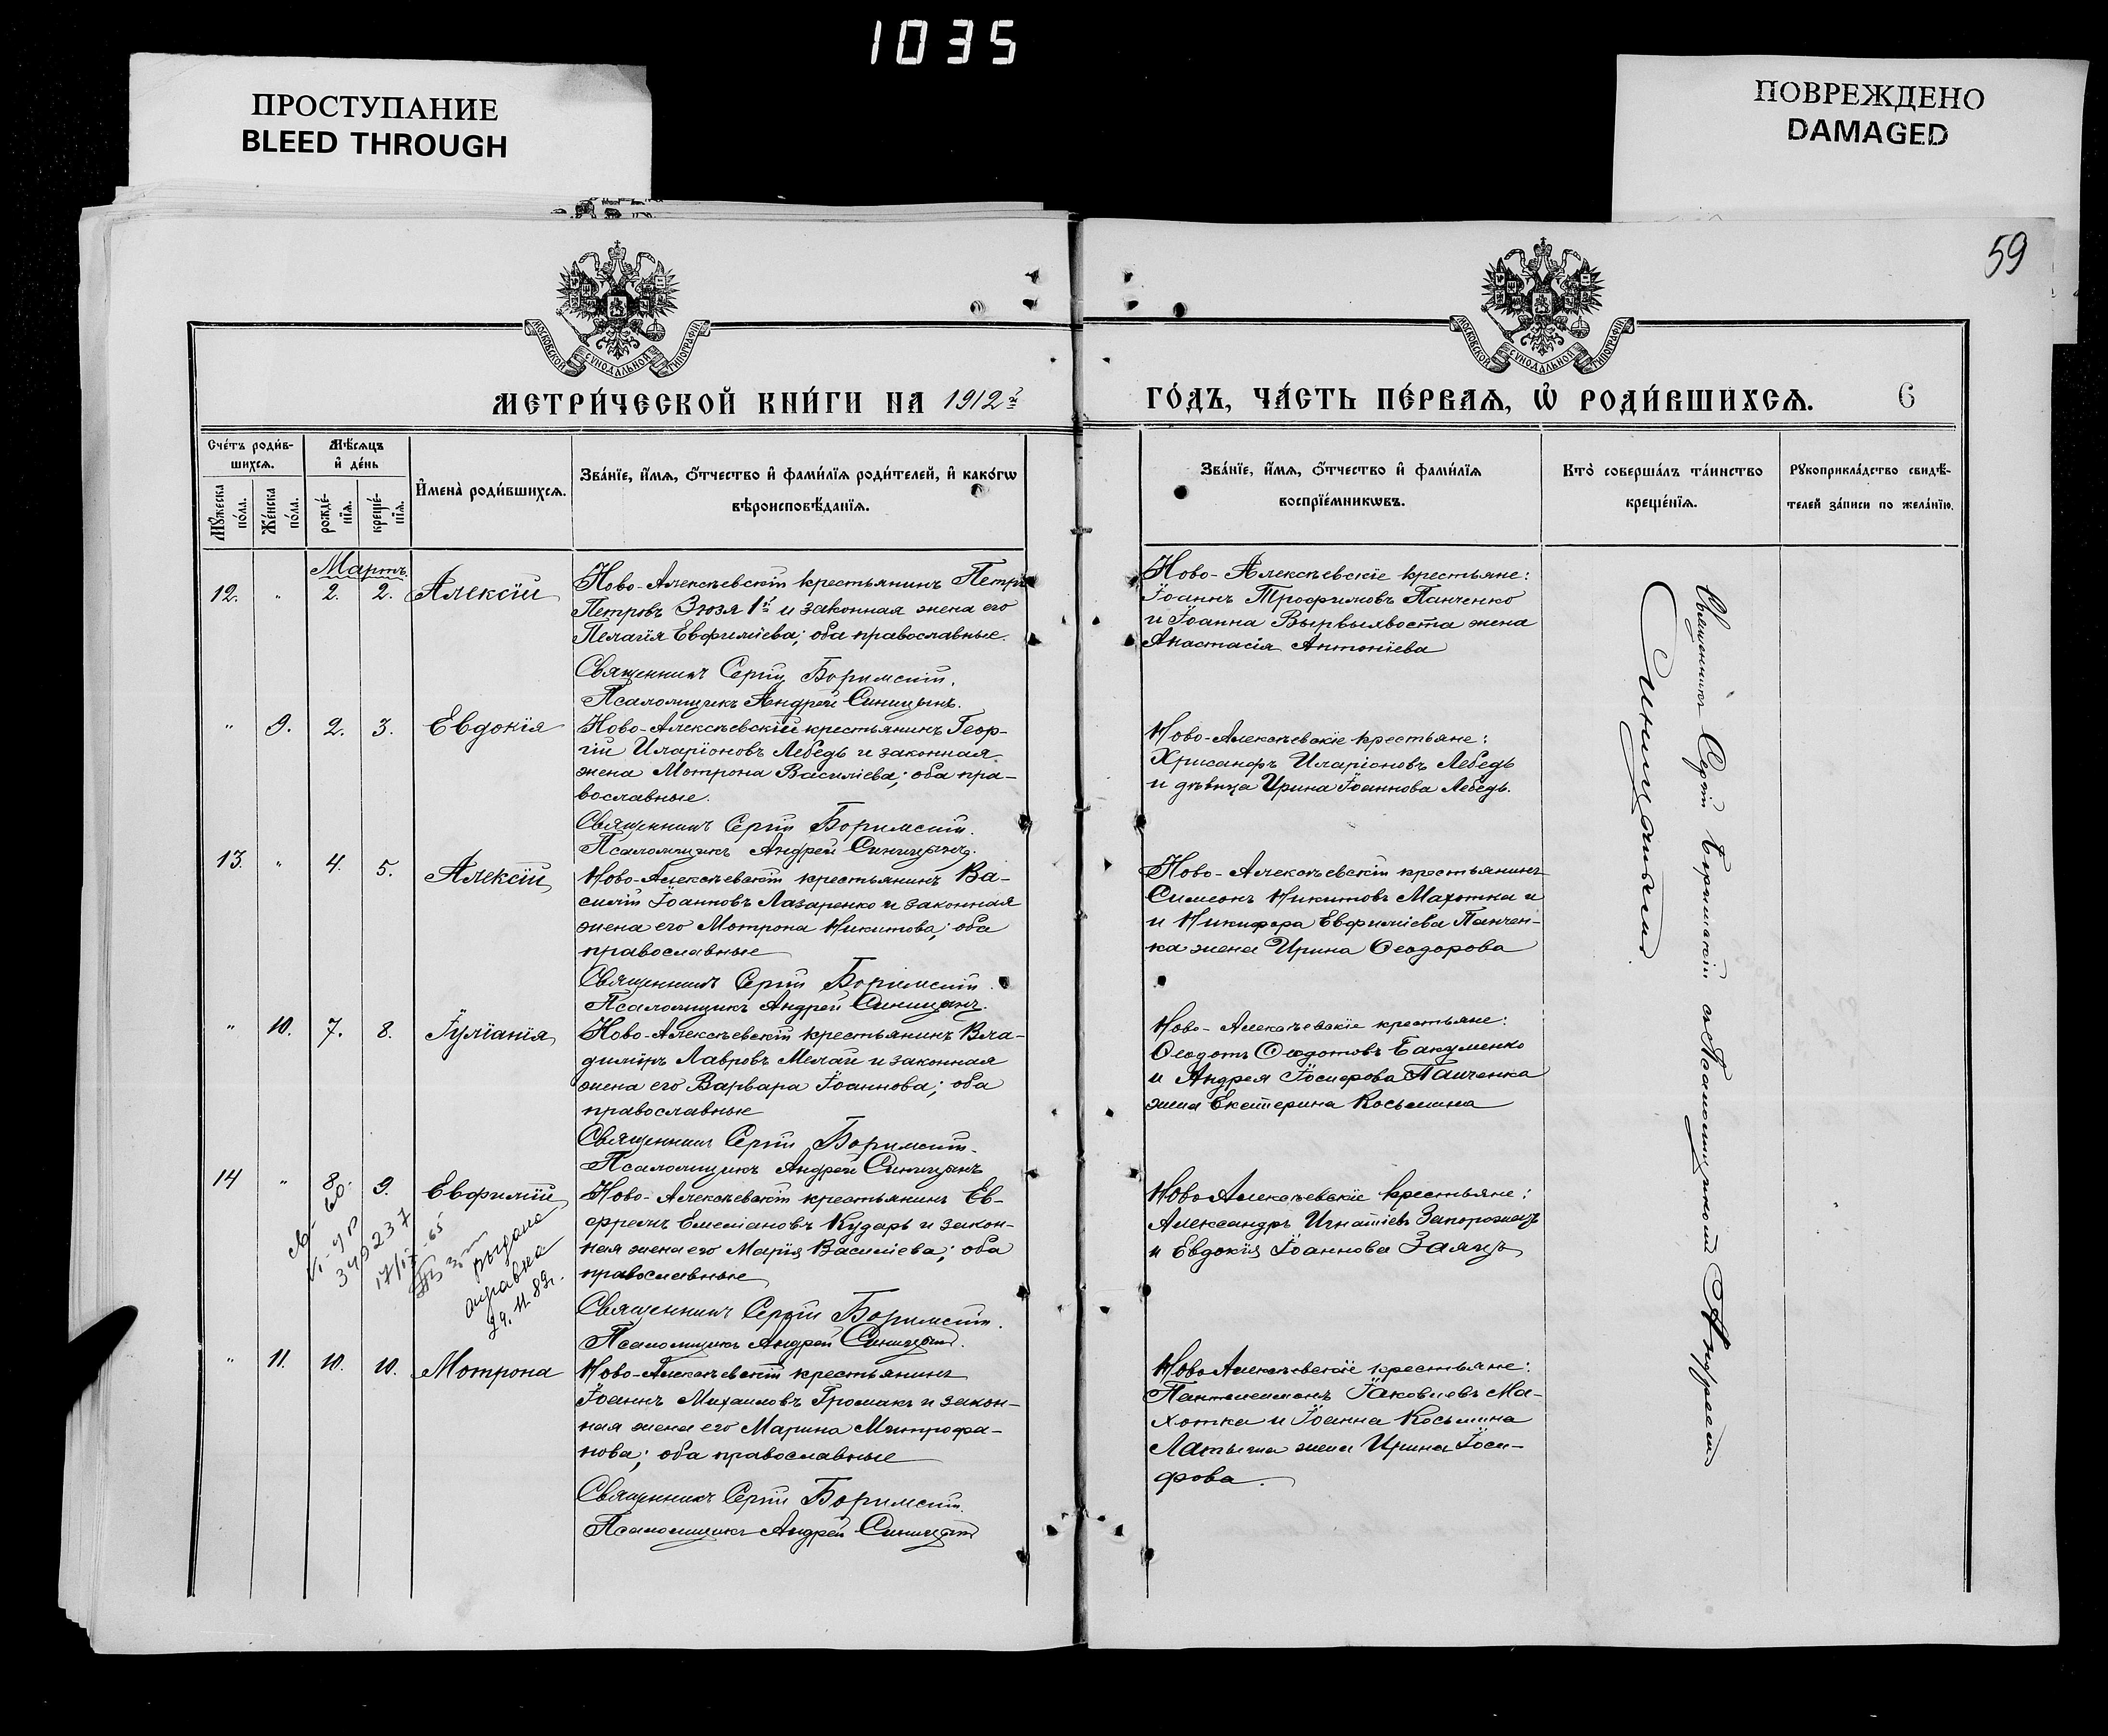 1035
ПРОСТУПАНИЕ
BLEED THROUGH
ПОВРЕЖДЕНО
DAMAGED
59
МОСКОВСКОЙ СѴНОДАЛЬНОЙ ТИПОГРАФІИ
МОСКОВСКОЙ СѴНОДАЛЬНОЙ ТИПОГРАФІИ
МЕТРИ́ЧЕСКОЙ КНИ́ГИ НА 1912 й
ГО́ДЪ, ЧА́СТЬ ПЕ́РВАЯ, Ѡ҆ РОДИ́ВШИХСЯ. 6
Сче́тъ роди́в-
шихся.
Мѣ́сяцъ
и҆ де́нь
Мꙋ́жеска по́ла.
Же́нска по́ла.
рожде́-
нїя.
креще́-
нїя.
И҆мена̀ роди́вшихся.
Зва́нїе, и҆́мя, ѻ҆́тчество и҆ фами́лїя роди́телей, и҆ како́гѡ
вѣроисповѣ́данїя.
Зва́нїе, и҆́мя, ѻ҆́тчество и҆ фами́лїя
воспрїе́мникѡвъ.
Кто̀ соверша́лъ та́инство
креще́нїя.
Рꙋкоприкла́дство свидѣ́-
телей за́писи по жела́нїю.
Мартъ
12. " 2. 2. Алексій
Ново-Алексѣевскій крестьянинъ Петръ
Петровъ Зюзя 1й и законная жена его
Пелагія Евфиміева; оба православные.
Священникъ Сергій Боримскій.
Псаломщикъ Андрей Синицынъ.
Ново-Алексѣевскіе крестьяне:
Іоаннъ Трофимовъ Панченко
и Іоанна Вырвыхвоста жена
Анастасія Антоніева
" 9. 2. 3. Евдокія
Ново-Алексѣевскій крестьянинъ Геор-
гій Иларіоновъ Лебедь и законная
жена Мотрона Василіева; оба пра-
вославные.
Священникъ Сергій Боримскій.
Псаломщикъ Андрей Синицынъ.
Ново-Алексѣевскіе крестьяне:
Хрисанфъ Иларіоновъ Лебедь
и дѣвица Ирина Іоаннова Лебедь.
13. " 4. 5. Алексій
Ново-Алексѣевскій крестьянинъ Ва-
силій Іоанновъ Лазаренко и законная
жена его Мотрона Никитова; оба
православные
Священникъ Сергій Боримскій.
Псаломщикъ Андрей Синицынъ.
Ново-Алексѣевскій крестьянинъ
Симеонъ Никитовъ Махотка и
и Никифора Евфиміева Панчен-
ка жена Ирина Ѳеодорова
" 10. 7. 8. Іуліанія
Ново-Алексѣевскій крестьянинъ Вла-
диміръ Лавровъ Мелай и законная
жена его Варвара Іоаннова; оба
православные
Священникъ Сергій Боримскій.
Псаломщикъ Андрей Синицынъ
Ново-Алексѣевскіе крестьяне:
Ѳеодотъ Ѳеодотовъ Бакуменко
и Андрея Іосифова Панченка
жена Екатерина Косьмина
14 " 8. 9. Евфимій
Ново-Алексѣевскій крестьянинъ Ев-
фремъ Емеліановъ Кударь и закон-
ная жена его Марія Василіева; оба
православные
Священникъ Сергій Боримскій.
Псаломщикъ Андрей Синицынъ.
Ново Алексѣевскіе крестьяне:
Александръ Игнатіевъ Запорожецъ
и Евдокія Іоаннова Заяцъ
349237
выдана
справка
29.11.89г.
" 11. 10. 10. Мотрона
Ново-Алексѣевскій крестьянинъ
Іоаннъ Михаиловъ Громакъ и закон-
ная жена его Марина Митрофа-
нова; оба православные
Священникъ Сергій Боримскій.
Псаломщикъ Андрей Синицынъ
Ново Алексѣевскіе крестьяне:
Пантелеимонъ Іаковлевъ Ма-
хотка и Іоанна Косьмина
Латыша жена Ирина Іоси-
фова.
Священникъ Сергій Боримскій съ Псаломщикомъ Андреемъ
Синицынымъ.